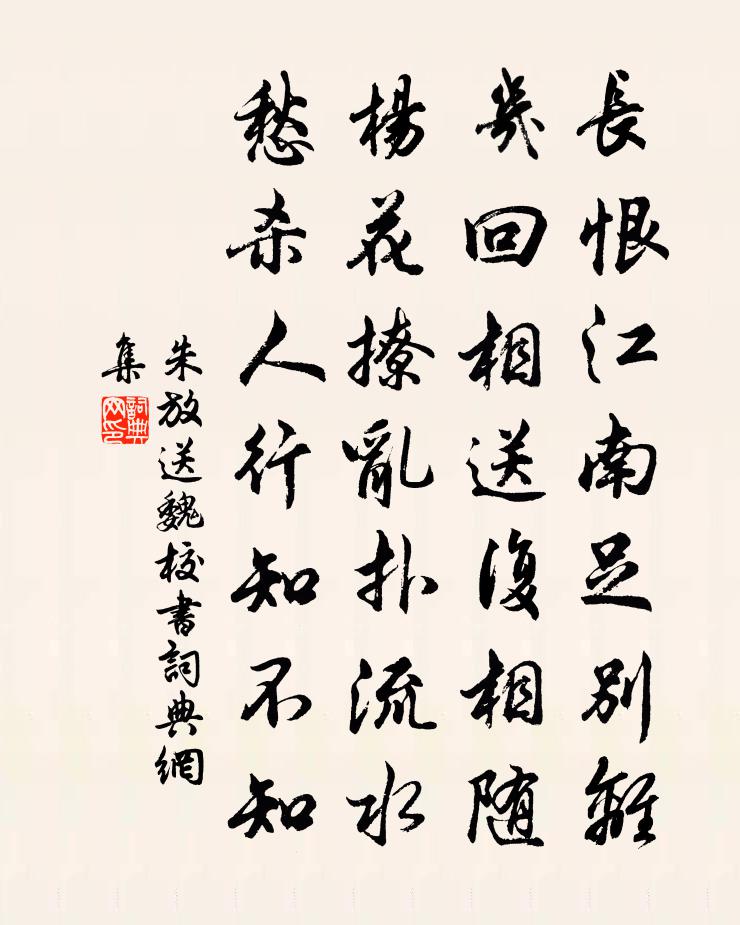 長恨江南足别離
幾回相送復相随
楊花撩亂扑流水
愁杀人行知不知
朱放送魏校書詞典網
集
詞典網印